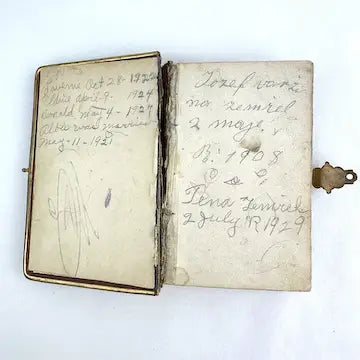 Laverne Oct 28- 1922
Elsie April 9- 1924
Donald May 4- 1927
Albie was married
May-11-192
Jozef
na zemrel
2 maje
R. 1908
Pena Zemrel
2 July R 1929